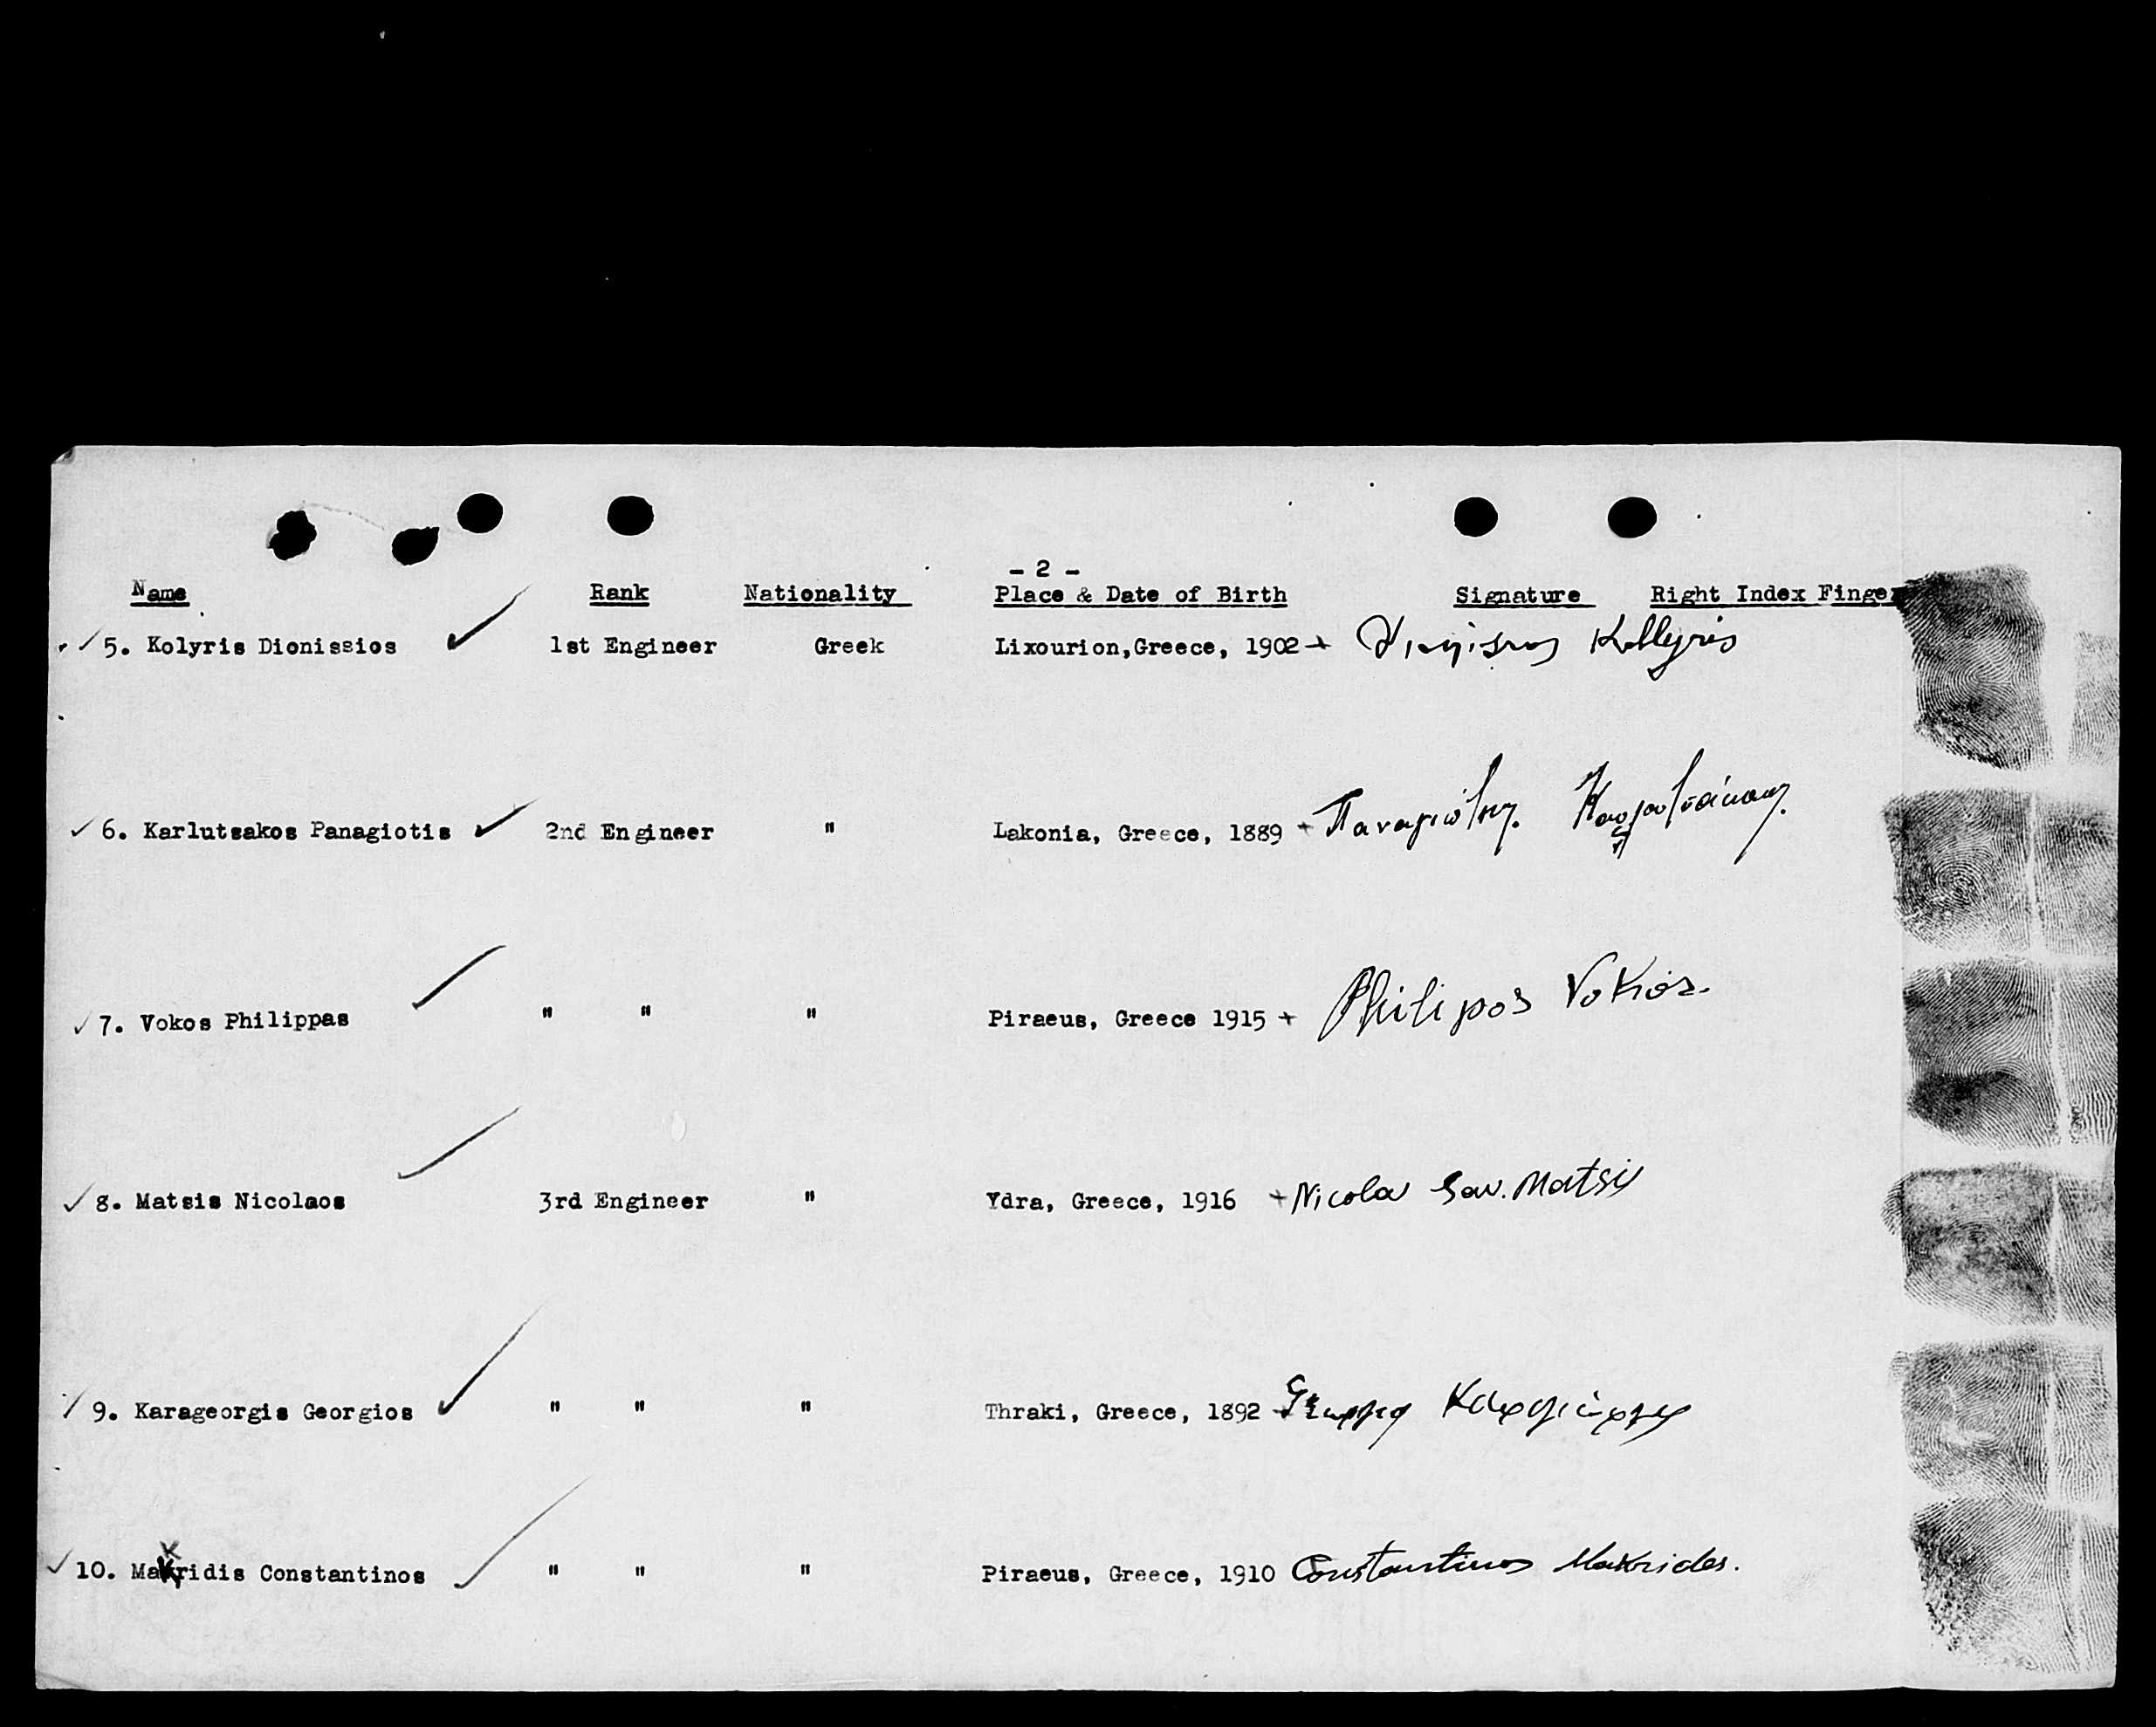 - 2 -
Name Rank Nationality Place & Date of Birth Signature Right Index Finger
5. Kolyris Dionissios 1st Engineer Greek Lixourion,Greece, 1902 Kollyris
6. Karlutsakos Panagiotis 2nd Engineer " Lakonia, Greece, 1889 Παναγιώτης
7. Vokos Philippas " " " Piraeus, Greece 1915 Philipos Vokos.
8. Matsis Nicolaos 3rd Engineer " Ydra, Greece, 1916 Nicola Sav. Matsis
9. Karageorgis Georgios " " " Thraki, Greece, 1892
10. Makridis Constantinos " " " Piraeus, Greece, 1910 Constantinos Makrides.